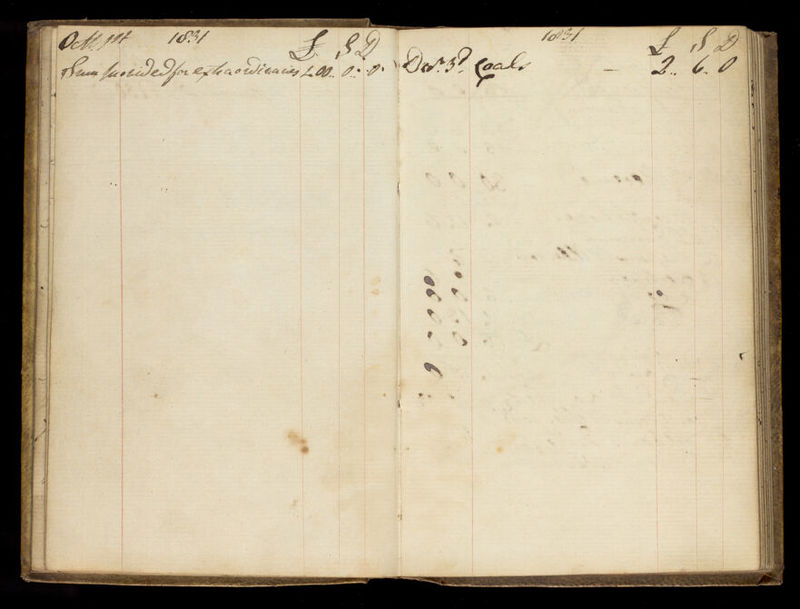 Octr 1st 1831 £ S D
Sum provided for extraordinaries 00.. 0.. 0.
1831 £ S D
Decr. 3d. Coals — 2.. 6.. 0